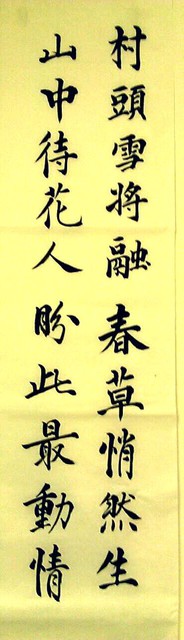 村頭雪將融春草悄然生
山中待花人盼此最動情